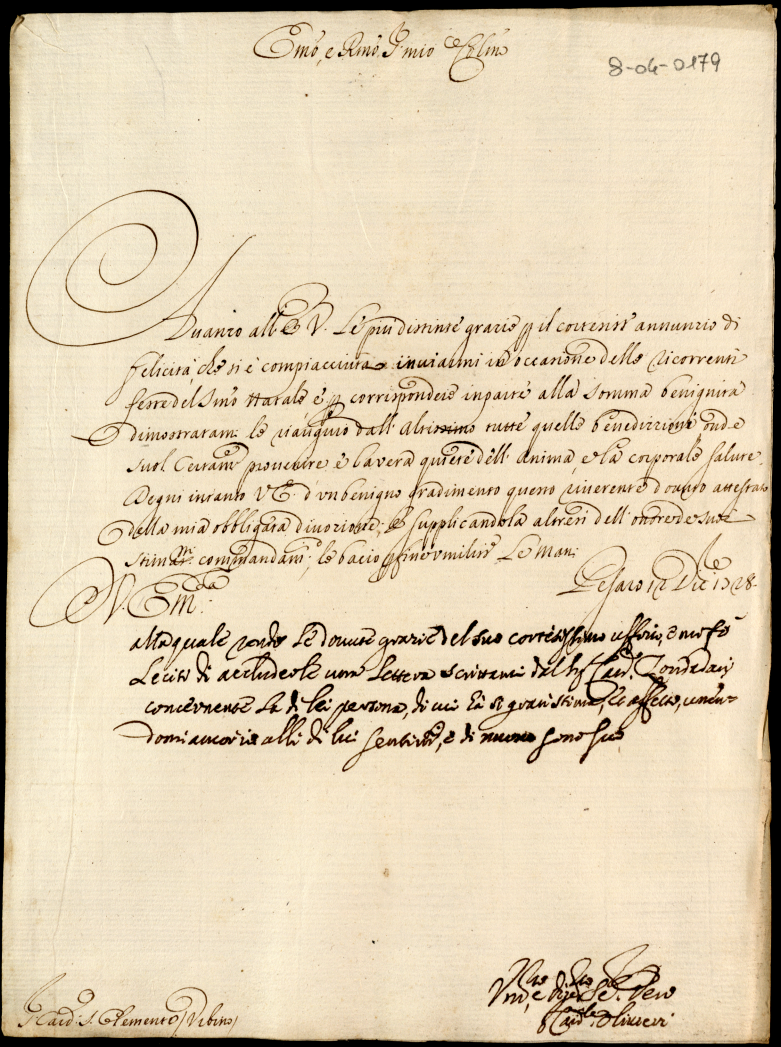 Emõ, e Rmõ Sig mio Ossmo
8-04-0179
Auanzo all' E V. Le più distinte grazie p il cortesissº annunzio di
felicità, che si è compiacciuta inuiarmi in occasione delle ricorrenti
feste del Smo Natale e p corrispondere in parte alla somma benignità
dimostratami le riauguro dall' Altissimo tutte quelle benedizioni, onde
suol provenire e la vera quiete dell' anima e la corporale salute.
Degni intanto V E. d'un benigno gradimento questo riuerente douuto attestato
della mia obbligata diuozione, e supplicandola altresì dell' onore de suoi
stim commandam; le bacio umiliss Le Mani
Pesaro 12 Dice 1728
V. Emza
alla quale rendo le douute grazie del suo cortesissimo ufficio, e mi fo
lecito di accluderle una Lettera scrittami dal Sig Card. Zondadari
concernente la di lei persona, di cui hà stima, et affetto, unen-
domi ancor io alli di lui sentim, e di nuouo sono suo
Seru Vero
Card Oliuieri
S Card: S. Clemente / Vrbino /